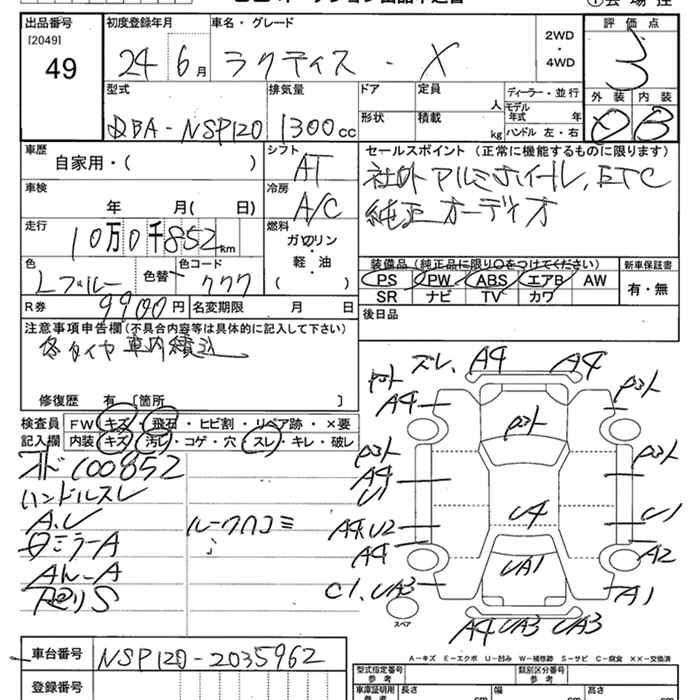 出品番号
[2049]
49
初度登録年月
24 6月
車名・グレード
ラクティス - X
2WD
・
4WD
評価点
3
外装 内装
D B
型式
DBA-NSP120
排気量
1300cc
ドア
形状
定員
人
積載
kg
ディーラー・並行
モデル年式 年
ハンドル 左・右
車歴
自家用・( )
シフト
AT
車検
年 月( 日)
冷房
A/C
走行
10万0千852km
燃料
ガソリン
・
軽・油
( )
色
Lブルー
色替
色コード
R券
9900円
名変期限 月 日
セールスポイント (正常に機能するものに限ります)
社外アルミホイール、ETC
純正オーディオ
装備品(純正品に限り○をつけてください)
PS PW ABS エアB AW
SR ナビ TV カワ
新車保証書
有・無
後日品
注意事項申告欄(不具合内容等は具体的に記入して下さい)
冬タイヤ車内積込
修復歴 有 〔箇所 〕
検査員
記入欄
FW キズ・飛石・ヒビ割・リペア跡・×要
内装 キズ・汚レ・コゲ・穴・スレ・キレ・破レ
オド100852
ハンドルスレ
ルーフ凹コミ
ミラーA
S
ズレ、A4 A4
A4
A4
U1
A4、U2
A4
C1、UA3
U4
UA1
C1
A2
A1
A4 UA3 UA3
スペア
A-キズ E-エクボ U-凹み W-補修跡 S-サビ C-腐食 ××-交換済
車台番号
NSP120-2035962
登録番号
型式指定番号
参考
類別区分番号
参考
車庫証明用
参考
長さ cm
幅 cm
高さ cm